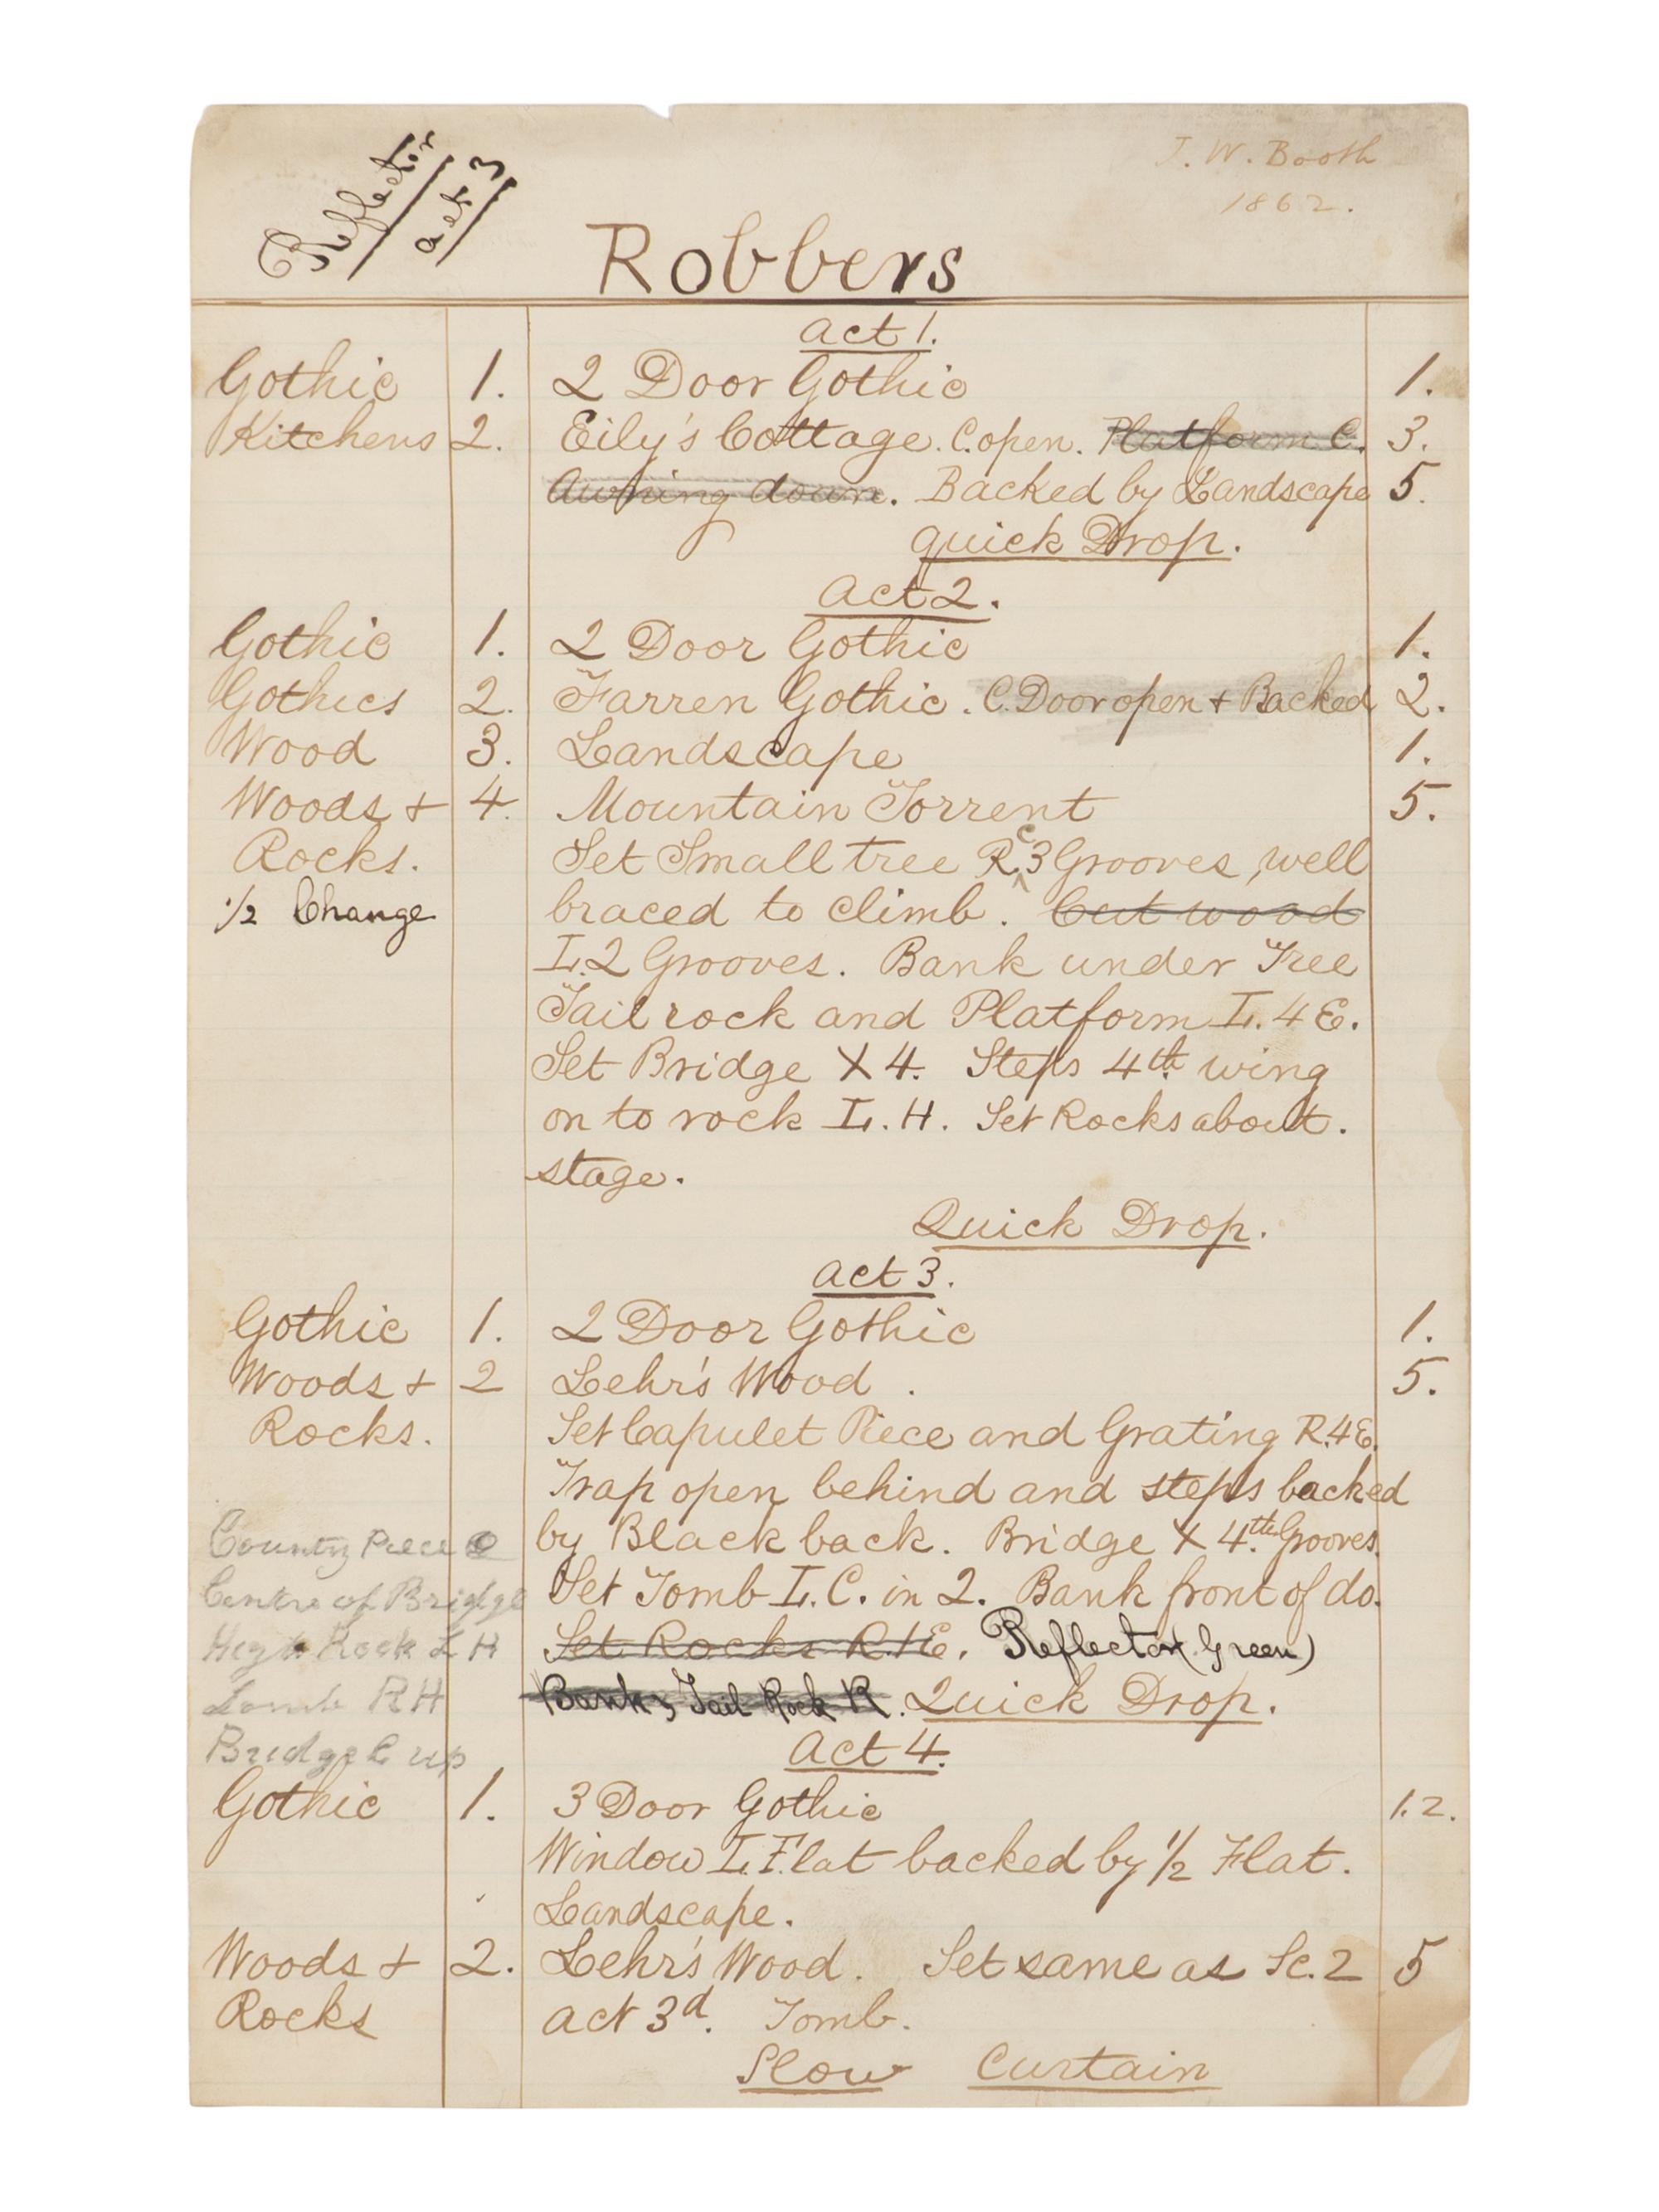 Reflector
act 3
J. W. Booth
1862.
Robbers
Act 1.
Gothic 1. 2 Door Gothic 1.
Kitchens 2. Eily's Cottage. C. open. Platform C. 3.
Awning down. Backed by Landscape 5.
quick Drop.
Act 2.
Gothic 1. 2 Door Gothic 1.
Gothics 2. Farren Gothic. C. Door open + Backed 2.
Wood 3. Landscape 1.
Woods + 4. Mountain Torrent 5.
Rocks. Set Small tree R. C 3 Grooves, well
1/2 Change braced to climb. Cut wood
L. 2 Grooves. Bank under Tree
Tail rock and Platform L. 4 E.
Set Bridge X 4. Steps 4th. wing
on to rock L. H. Set Rocks about.
stage.
Quick Drop.
Act 3.
Gothic 1. 2 Door Gothic 1.
Woods + 2 Lehr's Wood. 5.
Rocks. Set Capulet Piece and Grating R. 4 E.
Trap open behind and steps backed
Country Piece by Black back. Bridge X 4.th Grooves.
Centre of Bridge Set Tomb L. C. in 2. Bank front of do.
High Rock L H Set Rocks R. 1 E. Reflector (Green)
Tomb R H Bank, Tail Rock R. Quick Drop.
Bridge C up Act 4.
Gothic 1. 3 Door Gothic 1. 2.
Window L. Flat backed by 1/2 Flat.
Landscape.
Woods + 2. Lehr's Wood. Set same as Sc. 2 5
Rocks act 3d. Tomb.
Slow Curtain